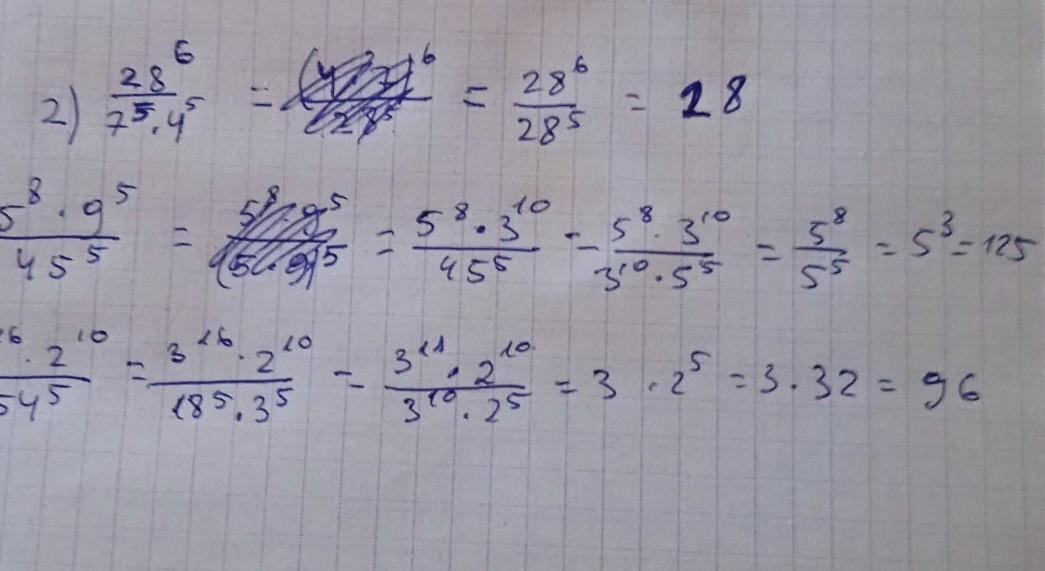 2) 28^6 / 7^5 · 4^5 = = 28^6 / 28^5 = 28
5^8 · 9^5 / 45^5 = = 5^8 · 3^10 / 45^5 = 5^8 · 3^10 / 3^10 · 5^5 = 5^8 / 5^5 = 5^3 = 125
6 · 2^10 / 54^5 = 3^16 · 2^10 / 18^5 · 3^5 = 3^11 · 2^10 / 3^10 · 2^5 = 3 · 2^5 = 3 · 32 = 96